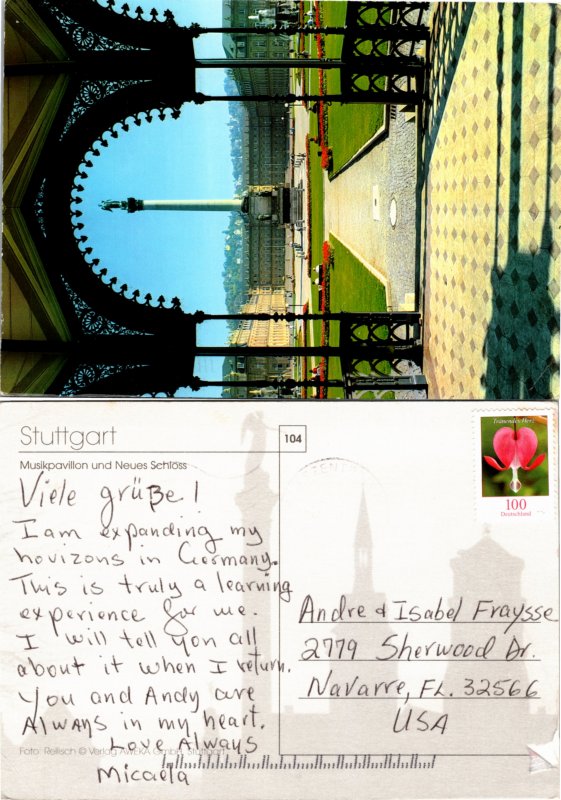 Stuttgart
Musikpavillon und Neues Schloss
104
Tränendes Herz
100
Deutschland
Viele grüße!
I am expanding my
horizons in Germany.
This is truly a learning
experience for me.
I will tell you all
about it when I return.
You and Andy are
Always in my heart.
Love Always
Micaela
Andre & Isabel Fraysse
2779 Sherwood Dr.
Navarre, FL. 32566
USA
Foto: Rellisch © Verlag AWEKA GmbH, Stuttgart